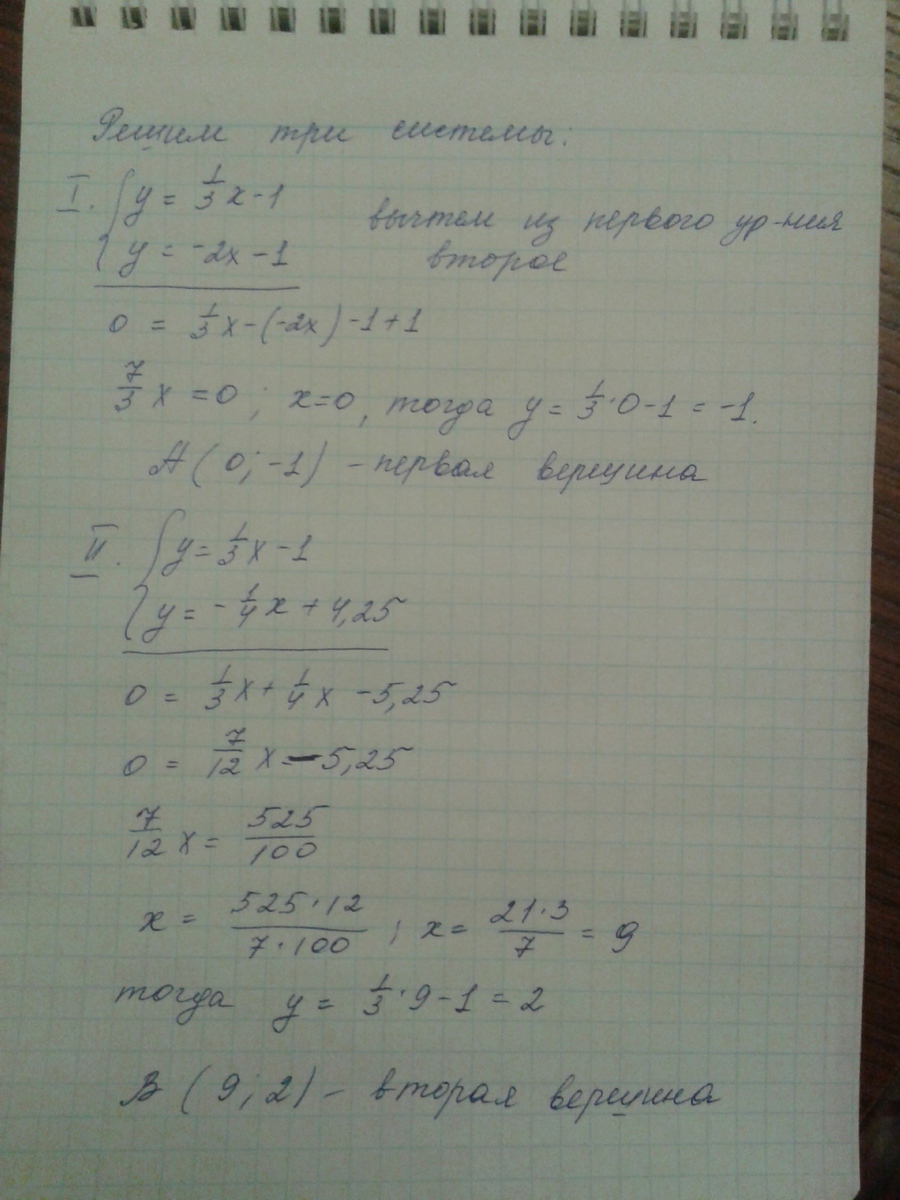 Решим три системы:
I. { y = 1/3 x - 1
{ y = -2x - 1
вычтем из первого ур-ния
второе
0 = 1/3 x - (-2x) - 1 + 1
7/3 x = 0 ; x = 0 , тогда y = 1/3 · 0 - 1 = -1.
A ( 0 ; -1 ) - первая вершина
II. { y = 1/3 x - 1
{ y = - 1/4 x + 4,25
0 = 1/3 x + 1/4 x - 5,25
0 = 7/12 x - 5,25
7/12 x = 525/100
x = 525 · 12 / 7 · 100 ; x = 21 · 3 / 7 = 9
тогда y = 1/3 · 9 - 1 = 2
B ( 9 ; 2 ) - вторая вершина